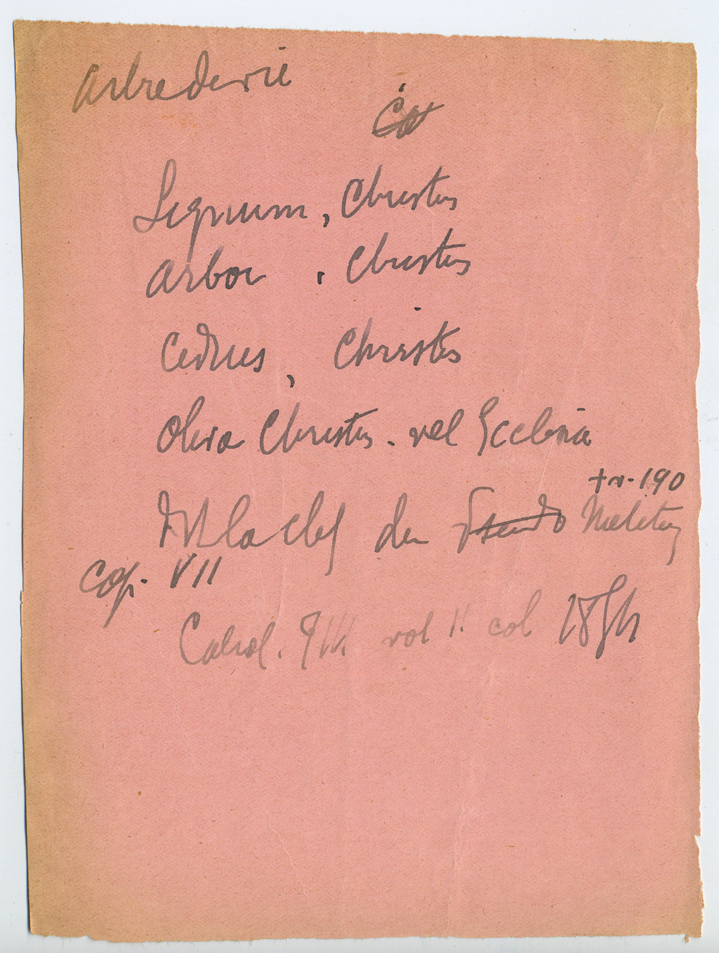 arbre de vie
Lignum, Christus
arbor, Christus
Cedrus, Christus
Oliva Christus - vel Ecclesia
+ n. 190
la clef de Meliton
cap. VII
Cabrol. vol II. col